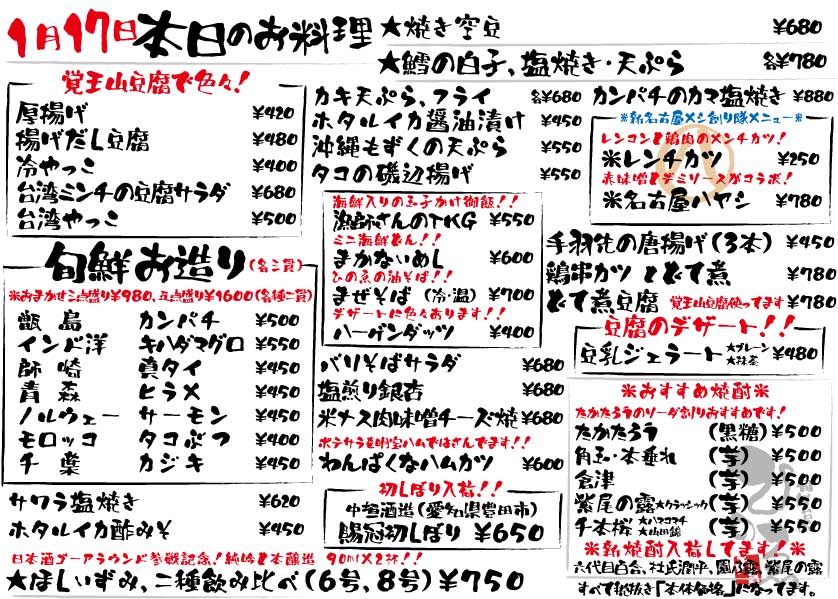 1月17日本日のお料理
★焼き空豆 ¥680
★鱈の白子、塩焼き・天ぷら 各¥780
覚王山豆腐で色々!
厚揚げ ¥420
揚げだし豆腐 ¥480
冷やっこ ¥400
台湾ミンチの豆腐サラダ ¥680
台湾やっこ ¥500
旬鮮お造り(各二貫)
※おまかせ三点盛り¥980、五点盛り¥1600(各種二貫)
甑島 カンパチ ¥500
インド洋 キハダマグロ ¥550
師崎 真タイ ¥450
青森 ヒラメ ¥450
ノルウェー サーモン ¥450
モロッコ タコぶつ ¥400
千葉 カジキ ¥450
サワラ塩焼き ¥620
ホタルイカ酢みそ ¥450
日本酒ゴーアラウンド参戦記念!純吟と本醸造 90ml×2杯!!
★ほしいずみ、二種飲み比べ(6号、8号)¥750
カキ天ぷら、フライ 各¥680
ホタルイカ醤油漬け ¥450
沖縄もずくの天ぷら ¥550
タコの磯辺揚げ ¥550
海鮮入りの玉子かけ御飯!!
漁師さんのTKG ¥550
ミニ海鮮どん!!
まかないめし ¥600
ひの魚の油そば!!
まぜそば(冷・温) ¥700
デザートに色々あります!!
ハーゲンダッツ ¥400
バリそばサラダ ¥680
塩煎り銀杏 ¥680
米ナス肉味噌チーズ焼 ¥680
ポテサラを明宝ハムではさんでます!!
わんぱくなハムカツ ¥600
初しぼり入荷!!
中垣酒造(愛知県豊田市)
賜冠初しぼり ¥650
カンパチのカマ塩焼き ¥880
※新名古屋メシ創り隊メニュー※
レンコンと鶏肉のメンチカツ!
※レンチカツ ¥250
赤味噌とデミソースがコラボ!
※名古屋ハヤシ ¥780
手羽先の唐揚げ(3本) ¥450
鶏串カツ とどて煮 ¥780
どて煮豆腐 覚王山豆腐使ってます ¥780
豆腐のデザート!!
豆乳ジェラート ★プレーン ★抹茶 ¥480
※おすすめ焼酎※
たかたろうのソーダ割りおすすめです!
たかたろう (黒糖) ¥500
角玉・本垂れ (芋) ¥500
倉津 (芋) ¥500
紫尾の露★クラッシック(芋) ¥550
千本桜 ★ハマコマチ ★山田錦 (芋) ¥550
※新焼酎入荷してます!※
六代目百合、杜氏潤平、風乃露、紫尾の露
すべて税抜き「本体価格」になってます。